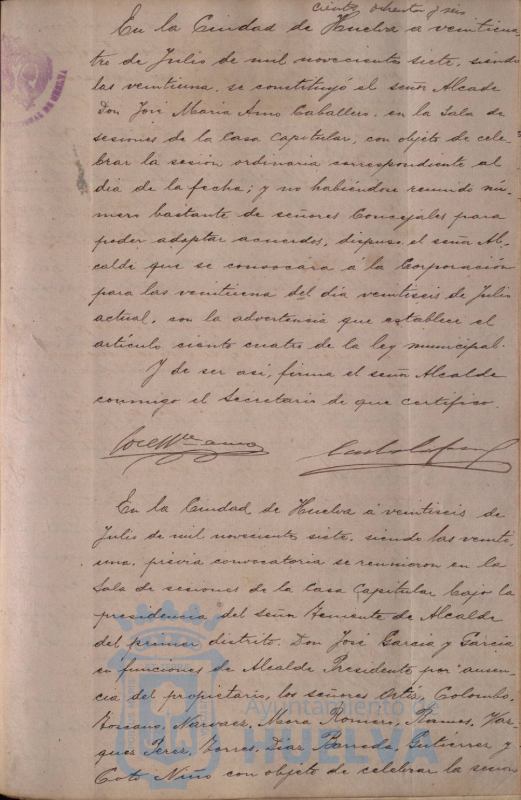 ciento ochenta y seis
En la Ciudad de Huelva a veinticua
tro de Julio de mil novecientos siete, siendo
las veintiuna, se constituyó el señor Alcade
Don José Maria Amo Caballero, en la Sala de
sesiones de la Casa Capitular, con objeto de cele-
brar la sesión ordinaria correspondiente al
dia de la fecha; y no habiéndose reunido nú-
mero bastante de señores Concejales para
poder adoptar acuerdos, dispuso el señor Al-
calde que se convocara á la Corporación
para las veintiuna del dia veintiseis de Julio
actual, con la advertencia que establece el
artículo ciento cuatro de la ley municipal.
Y de ser así, firma el señor Alcalde
conmigo el Secretario de que certifico.
José Mª Amo
En la Ciudad de Huelva á veintiseis de
Julio de mil novecientos siete, siendo las veinti
una, prévia convocatoria se reunieron en la
Sala de sesiones de la Casa Capitular bajo la
presidencia del señor Teniente de Alcalde
del primer distrito, Don José García y García
en funciones de Alcalde Presidente por ausen-
cia del propietario, los señores Ortiz, Colombo,
Toscano, Narvaez, Mora Romero, Ramos, Vaz-
quez Perez, Torres, Diaz Barreda, Gutiérrez y
Coto Niño con objeto de celebrar la sesión
Ayuntamiento de
HUELVA